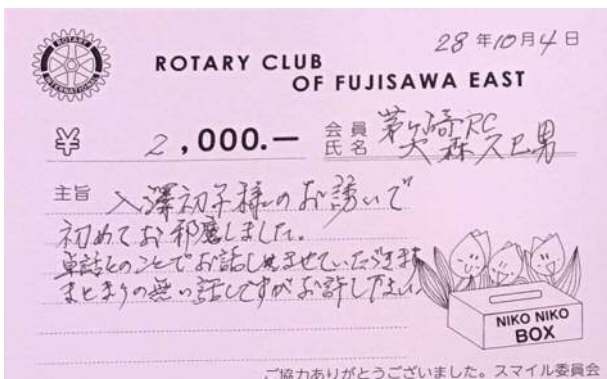 ROTARY INTERNATIONAL
28年10月4日
ROTARY CLUB
OF FUJISAWA EAST
¥ 2,000.—
会員氏名 茅ヶ崎RC
大森久巳男
主旨 入澤初子様のお誘いで
初めてお邪魔しました。
卓話とのことでお話しさせていただきます
まとまりの無い話しですがお許し下さい
NIKO NIKO
BOX
ご協力ありがとうございました。スマイル委員会